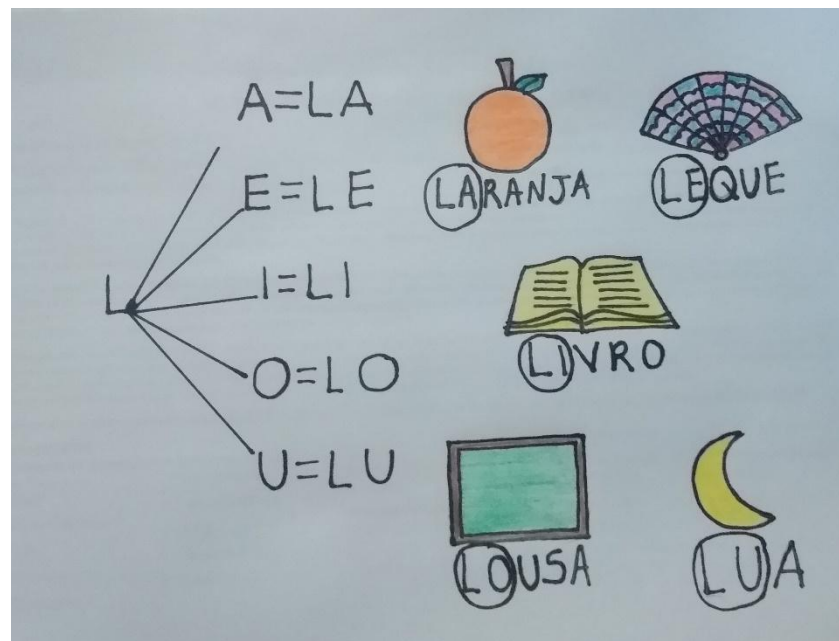 A=LA
E=LE
L
I=LI
O=LO
U=LU
LARANJA
LEQUE
LIVRO
LOUSA
LUA